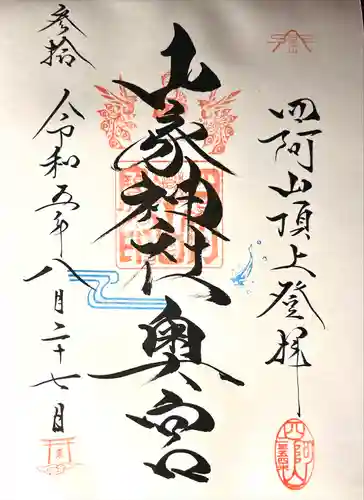 四阿山頂上登拝
山家神社奥宮
参拾
令和五年八月二十七日
四阿山